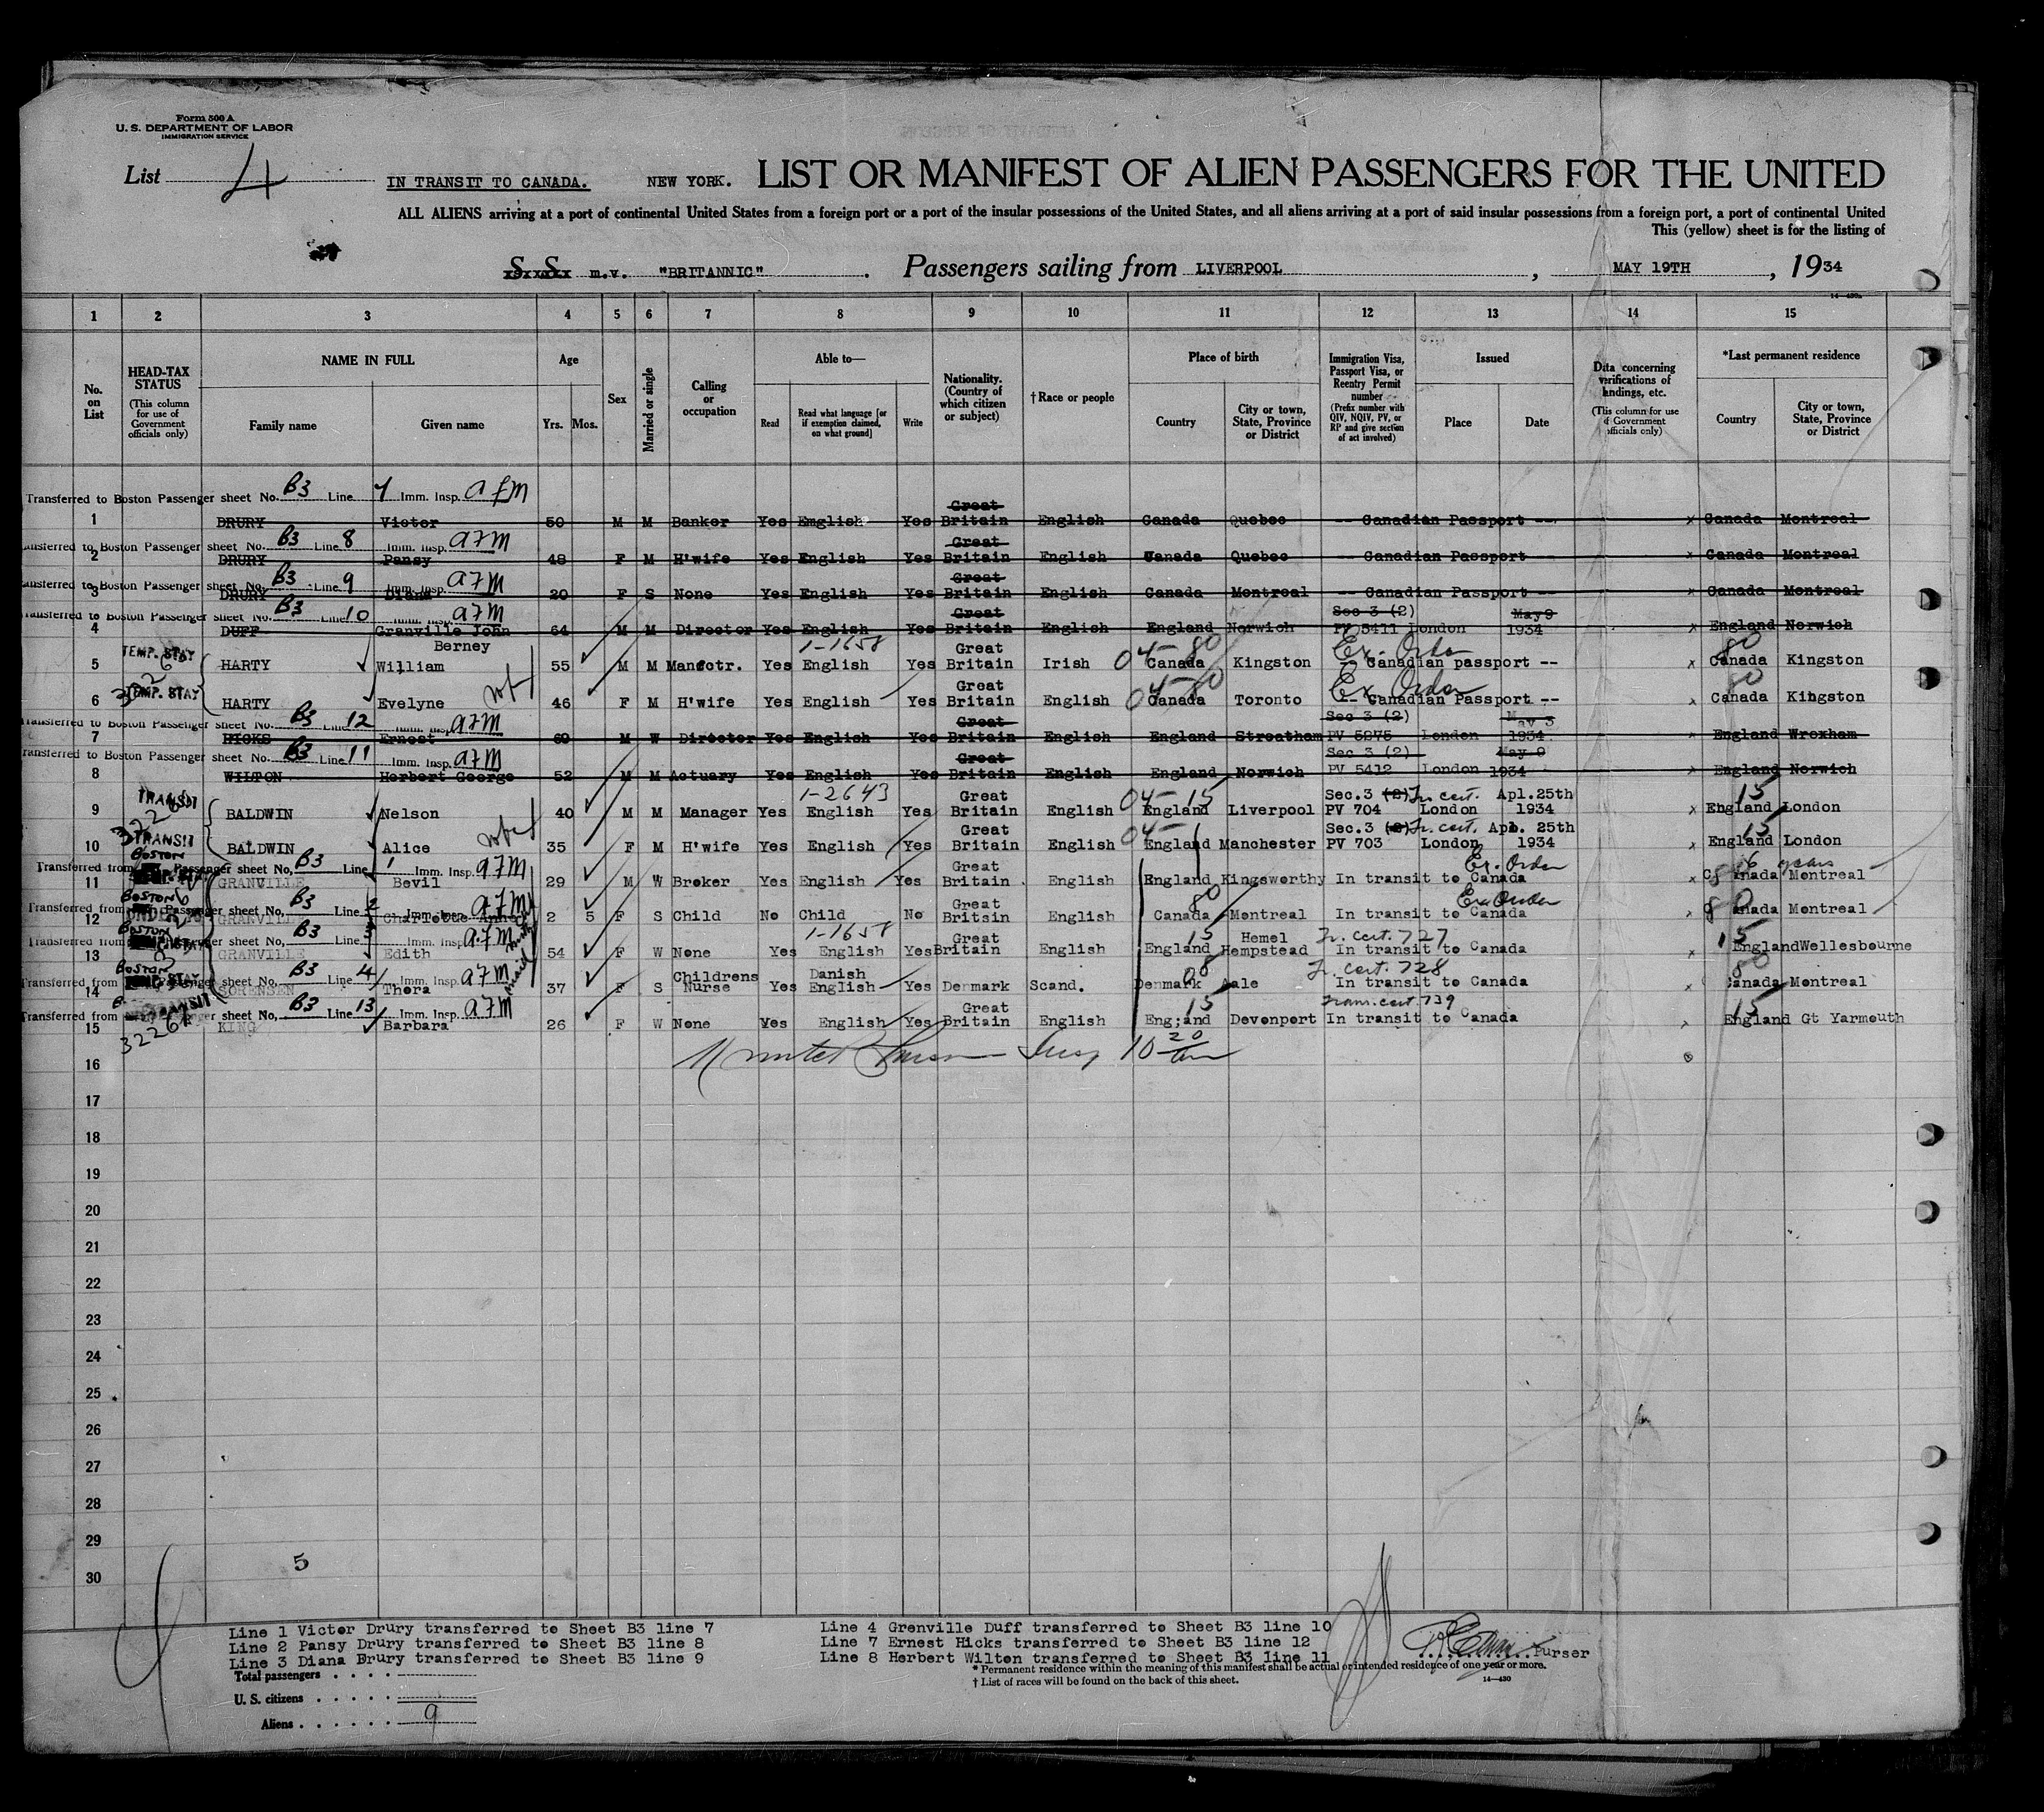 Form 500 A
U. S. DEPARTMENT OF LABOR
IMMIGRATION SERVICE
List 4 IN TRANSIT TO CANADA. NEW YORK. LIST OR MANIFEST OF ALIEN PASSENGERS FOR THE UNITED
ALL ALIENS arriving at a port of continental United States from a foreign port or a port of the insular possessions of the United States, and all aliens arriving at a port of said insular possessions from a foreign port, a port of continental United
This (yellow) sheet is for the listing of
S. S. m.v. "BRITANNIC" . Passengers sailing from LIVERPOOL , MAY 19TH , 1934
1 2 3 4 5 6 7 8 9 10 11 12 13 14 15
No. on List
HEAD-TAX STATUS (This column for use of Government officials only)
NAME IN FULL Family name Given name
Age Yrs. Mos.
Sex
Married or single
Calling or occupation
Able to— Read Read what language [or if exemption claimed, on what ground] Write
Nationality. (Country of which citizen or subject)
† Race or people
Place of birth Country City or town, State, Province or District
Immigration Visa, Passport Visa, or Reentry Permit number (Prefix number with QIV, NQIV, PV, or RP and give section of act involved)
Issued Place Date
Data concerning verifications of landings, etc. (This column for use of Government officials only)
*Last permanent residence Country City or town, State, Province or District
Transferred to Boston Passenger sheet No. B3 Line 7 Imm. Insp. a f m
1 DRURY Victor 50 M M Banker Yes Emglish Yes Great Britain English Canada Quebec -- Canadian Passport -- x Canada Montreal
ansferred to Boston Passenger sheet No. B3 Line 8 Imm. Insp. a f m
2 DRURY Pansy 48 F M H'wife Yes English Yes Great Britain English Canada Quebec -- Canadian Passport x Canada Montreal
ansferred to Boston Passenger sheet No. B3 Line 9 Imm. Insp. a f m
3 DRURY Diana 20 F S None Yes English Yes Great Britain English Canada Montreal -- Canadian Passport -- x Canada Montreal
ransferred to Boston Passenger sheet No. B3 Line 10 Imm. Insp. a f m
4 DUFF Granville John Berney 64 M M Director Yes English Yes Great Britain English England Norwich Sec 3 (2) PV 5411 London May 9 1934 x England Norwich
TEMP. STAY 1-1658 04-80 Ex. Order 80
5 HARTY William 55 M M Manfctr. Yes English Yes Great Britain Irish Canada Kingston -- Canadian passport -- x Canada Kingston
TEMP. STAY 04-80 Ex Order 80
6 HARTY Evelyne 46 F M H'wife Yes English Yes Great Britain English Canada Toronto -- Canadian Passport -- x Canada Kingston
ransferred to Boston Passenger sheet No. B3 Line 12 Imm. Insp. a f m
7 HICKS Ernest 69 M W Director Yes English Yes Great Britain English England Streatham Sec 3 (2) PV 5275 London May 3 1934 x England Wroxham
ransferred to Boston Passenger sheet No. B3 Line 11 Imm. Insp. a f m
8 WILTON Herbert George 52 M M Actuary Yes English Yes Great Britain English England Norwich Sec 3 (2) PV 5412 London May 9 1934 x England Norwich
TRANSIT 1-2643 04-15 15
9 BALDWIN Nelson 40 M M Manager Yes English Yes Great Britain English England Liverpool Sec.3 (2) Tr. cert. PV 704 London Apl.25th 1934 x England London
TRANSIT 04- 15
10 BALDWIN Alice 35 F M H'wife Yes English Yes Great Britain English England Manchester Sec.3 (2) Tr. cert. PV 703 London Apl. 25th 1934 x England London
Transferred from BOSTON Passenger sheet No. B3 Line 1 Imm. Insp. a f m Ex. Order 6 years
11 GRANVILLE Bevil 29 M W Broker Yes English Yes Great Britain English England Kingsworthy In transit to Canada x Canada Montreal
Transferred from BOSTON Passenger sheet No. B3 Line 2 Imm. Insp. a f m 80 Ex Order 80
12 GRANVILLE Charlotte Anne 2 5 F S Child No Child No Great Britsin English Canada Montreal In transit to Canada x Canada Montreal
Transferred from BOSTON Passenger sheet No. B3 Line 3 Imm. Insp. a f m 1-1658 15 Tr. cert. 727 15
13 GRANVILLE Edith 54 F W None Yes English Yes Great Britain English England Hemel Hempstead In transit to Canada x England Wellesbourne
Transferred from BOSTON Passenger sheet No. B3 Line 4 Imm. Insp. a f m maid 08 Tr. cert. 728 80
14 SORENSEN Thora 37 F S Childrens Nurse Yes Danish English Yes Denmark Scand. Denmark Aale In transit to Canada x Canada Montreal
Transferred from TRANSIT Passenger sheet No. B3 Line 13 Imm. Insp. a f m 15 Tran. cert. 739 15
15 KING Barbara 26 F W None Yes English Yes Great Britain English Eng;and Devonport In transit to Canada x England Gt Yarmouth
3226
16
17
18
19
20
21
22
23
24
25
26
27
28
29
30
5
Line 1 Victor Drury transferred to Sheet B3 line 7
Line 2 Pansy Drury transferred to Sheet B3 line 8
Line 3 Diana Drury transferred to Sheet B3 line 9
Line 4 Grenville Duff transferred to Sheet B3 line 10
Line 7 Ernest Hicks transferred to Sheet B3 line 12
Line 8 Herbert Wilton transferred to Sheet B3 line 11
Purser
Total passengers
U. S. citizens
Aliens 9
* Permanent residence within the meaning of this manifest shall be actual or intended residence of one year or more.
† List of races will be found on the back of this sheet.
14—430